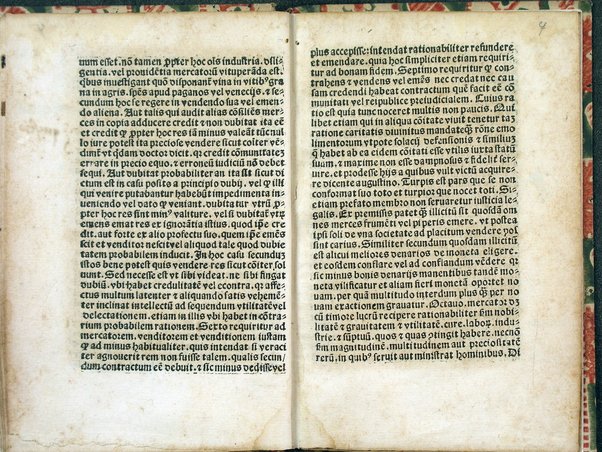 uum esset. nō tamen ꝓpter hoc oīs industria. dili-
gentia. vel prouidētia mercatorū vituperāda est.
qͥbus inuestigant quādo vina in vitibꝰ.
na in agris. ipēs apud paganos vel venecijs. ⁊ se-
cundum hoc se regere in vendendo sua vel emen-
do aliena. Aut talis qui audit alias cōsiles mer-
ces in copia adducere credit ⁊ non dubitat ita eē
et credit ꝙ ꝓpter hoc res iā minus valeāt tūc nul
lo iure potest ita preciose vendere sicut colter vē-
didit vt qdam doctor dicit. qꝛ credit cōmunitatem
errare in precio equo. ⁊ erroneū iudiciū nō debet
sequi. Aut dubitat probabiliter an ita sit sicut di
ctum est in casu posito a principio dubij. vel ꝙ illi
qui venire putabantur habebūt impedimenta in-
ueniendo vel dato ꝙ veniant. dubitatur vtrū
pter hoc res sint minꝰ valiture. vel si dubitat vtrū
emens emat res ex ignorātia sicut qͥdo ipse cre
dit. aut forte ex alio profectu suo. quem ipse emēs
scit et venditor nescit vel aliquod tale quod dubie
tatem probabilem inducit. In hoc casu secundum
istos bene potest quis vendere res sicut cōiter sol
uunt. Sed necesse est vt sibi videat. ne sibi fingat
dubiū. vbi habet credulitatē vel econtra. qꝛ affe-
ctus multum latenter ⁊ aliquando satis vehemē-
ter inclinat intellectū ad sequendum vtilitatē vel
delectationem. etiam in illis vbi habet in cōtra-
rium probabilem rationem. Sexto requiritur ad
mercatorem. venditorem et venditionem iustam
ꝙ ad minus habitualiter. quis intendat si veraci
ter agnouerit rem non fuisse talem. qualis secun/
dum contractum eē debuit. ⁊ sic minus dedisse vel
4
plus accepisse: intendat rationabiliter refundere
et emendare. quia hoc simpliciter etiam requiri-
tur ad bonam fidem. Septimo requiritur ꝙ con-
trahens ⁊ vendens vel emēs nec credat nec cau-
sam credendi habeat contractum quē facit eē cō
munitati vel reipublice preiudicialem. Cuius ra
tio est quia tunc noceret multis non paucis. Qui
libet etiam qui in aliqua cōitate viuit tenetur tam
ratione caritatis diuinitus mandateqꝫ rōne emo
limentorum vtpote solacij defensionis ⁊ similiuꝫ
ꝙ habet ab ea eidem cōitati esse vtilis iuxta statū
suum. ⁊ maxime non esse dampnosus ⁊ fidelit̄ ser-
uire. et prodesse hijs a quibus vult victū acquire-
re dicente augustino. Turpis est pars que se non
conformat suo toto et turpior que nocet toti. Si-
etiam prefato membro non seruaretur iusticia le-
galis. Et premissis patet ꝙ illicitū sit quosdā om
nes merces frumēti vel piperis emere. vt postea
ipsi soli de vna societate ad placitum vendere pos
sint carius. Similiter secundum quosdam illicitū
est alicui meliores denarios de moneta eligere.
et eosdem conflare vel ad conflandum vēdere ꝙ
sic minus bonis denarijs manentibus tandē mo-
neta vilificatur et aliam fieri monetā oportet no
uam. per quā multitudo interdum plus ꝙ̄ per no
uam exactionem grauatur. Octauo. mercatorꝫ
cū timore lucrū recipere rationabiliter fm̄ nobi-
litatē ⁊ grauitatem ⁊ vtilitatē. cure. laboꝝ. indu-
strie. ⁊ sūptuū. quos ⁊ quas ꝯtingit habere. necnō
fm̄ magnitudinē. multitudinem aut preciositatē
rerū. in quibꝰ seruit aut ministrat hominibus. Di